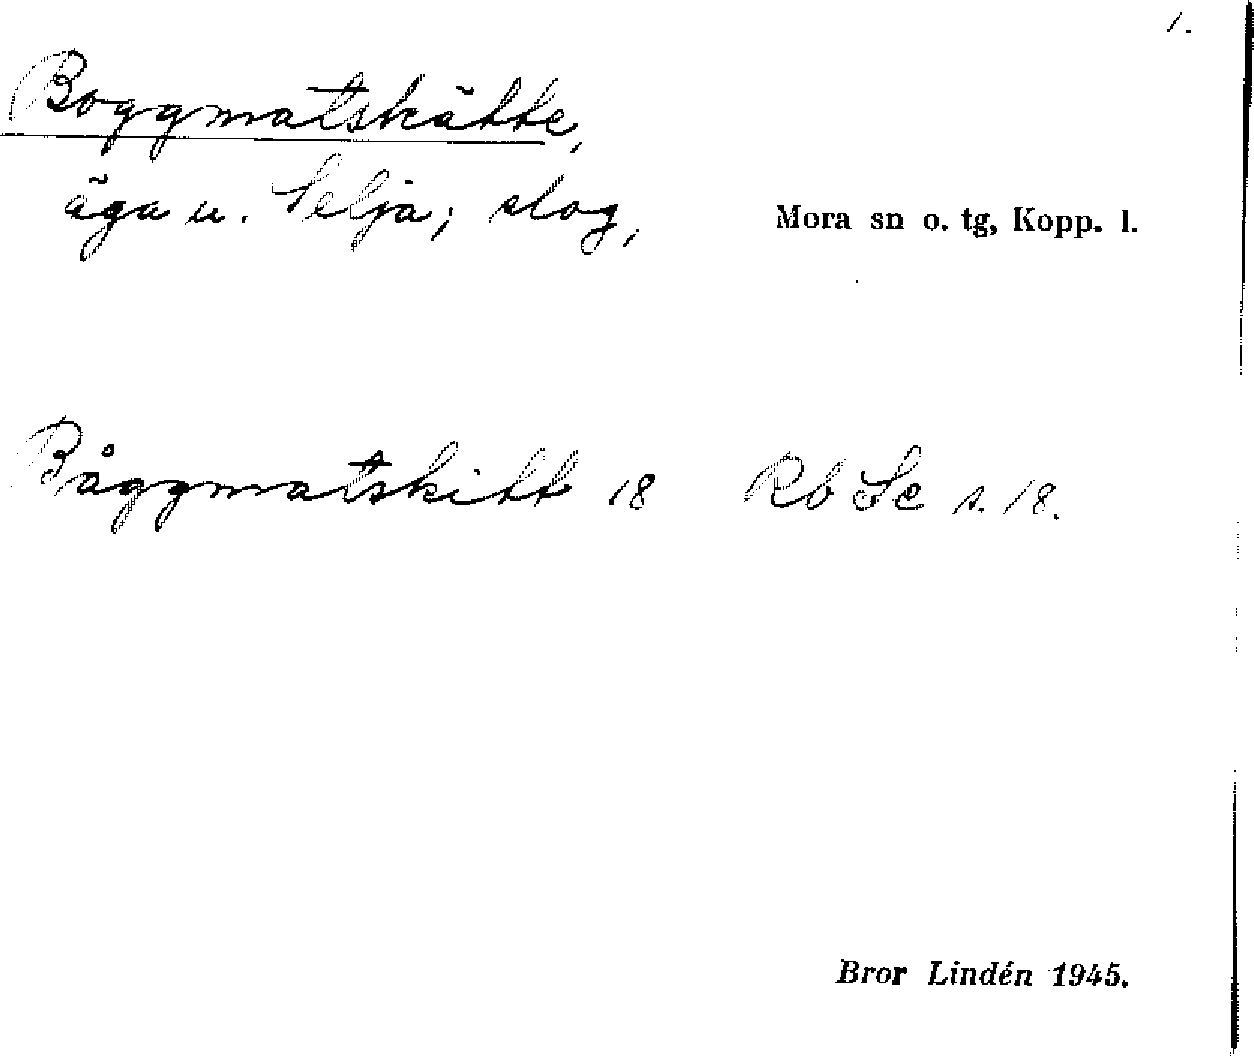 1.
Boggmatskätte,
äga u. Selja; slog,
Mora sn o. tg, Kopp. l.
Båggmatskitt 18 Rb Se s. 18.
Bror Lindén 1945.